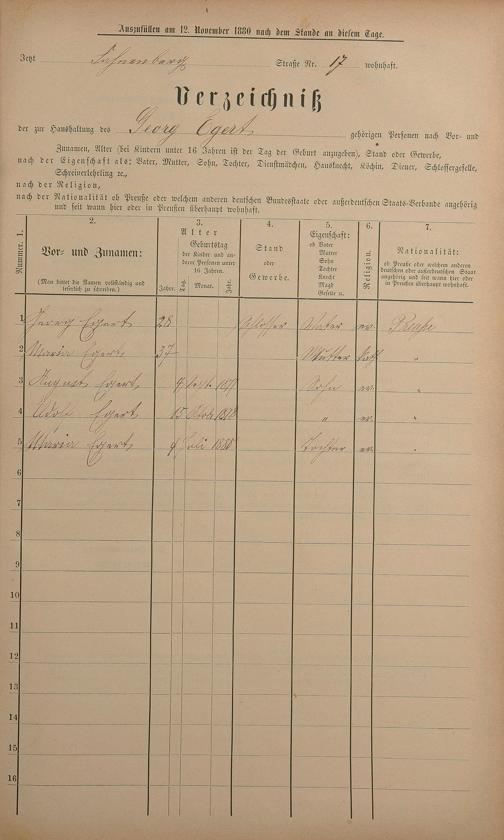 Auszufüllen am 12. November 1880 nach dem Stande an diesem Tage.
Jetzt Straße Nr. 17 wohnhaft.
Verzeichniß
der zur Haushaltung des Georg Egert gehörigen Personen nach Vor- und
Zunamen, Alter (bei Kindern unter 16 Jahren ist der Tag der Geburt anzugeben), Stand oder Gewerbe,
nach der Eigenschaft als: Vater, Mutter, Sohn, Tochter, Dienstmädchen, Hausknecht, Köchin, Diener, Schlossergeselle,
Schreinerlehrling ec.,
nach der Religion,
nach der Nationalität ob Preuße oder welchem anderen deutschen Bundesstaate oder außerdeutschen Staats-Verbande angehörig
und seit wann hier oder in Preußen überhaupt wohnhaft.
Nummer. 1.
2.
Vor- und Zunamen:
(Man bittet die Namen vollständig und
leserlich zu schreiben.)
3.
Alter
Geburtstag
der Kinder und an-
dere Personen unter
16 Jahren.
Jahre. Tag. Monat. Jahr.
4.
Stand
oder
Gewerbe.
5.
Eigenschaft:
ob Vater
Mutter
Sohn
Tochter
Knecht
Magd
Geselle u.
6.
Religion.
7.
Nationalität:
ob Preuße oder welchem anderen
deutschen oder außerdeutschen Staat
angehörig und seit wann hier oder
in Preußen überhaupt wohnhaft.
1 Georg Egert 28 Schlosser Vater ev. Preuße
2 Maria Egert 37 Mutter Kath "
3 August Egert 9 Sept. Sohn ev. "
4 Egert 15 " ev. "
5 Maria Egert 4 Juli 1880 Tochter ev. "
6
7
8
9
10
11
12
13
14
15
16